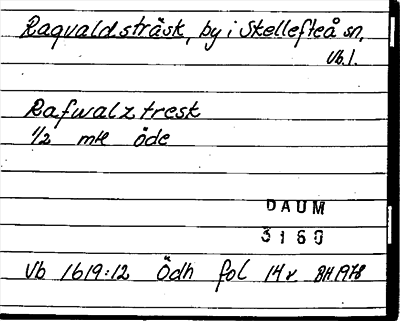 Ragvaldsträsk, by i Skellefteå sn,
Vb.l.
Rafwalztresk
1/2 mtl öde
DAUM
3160
Vb 1619:12 Ödh fol 14v BH 1978